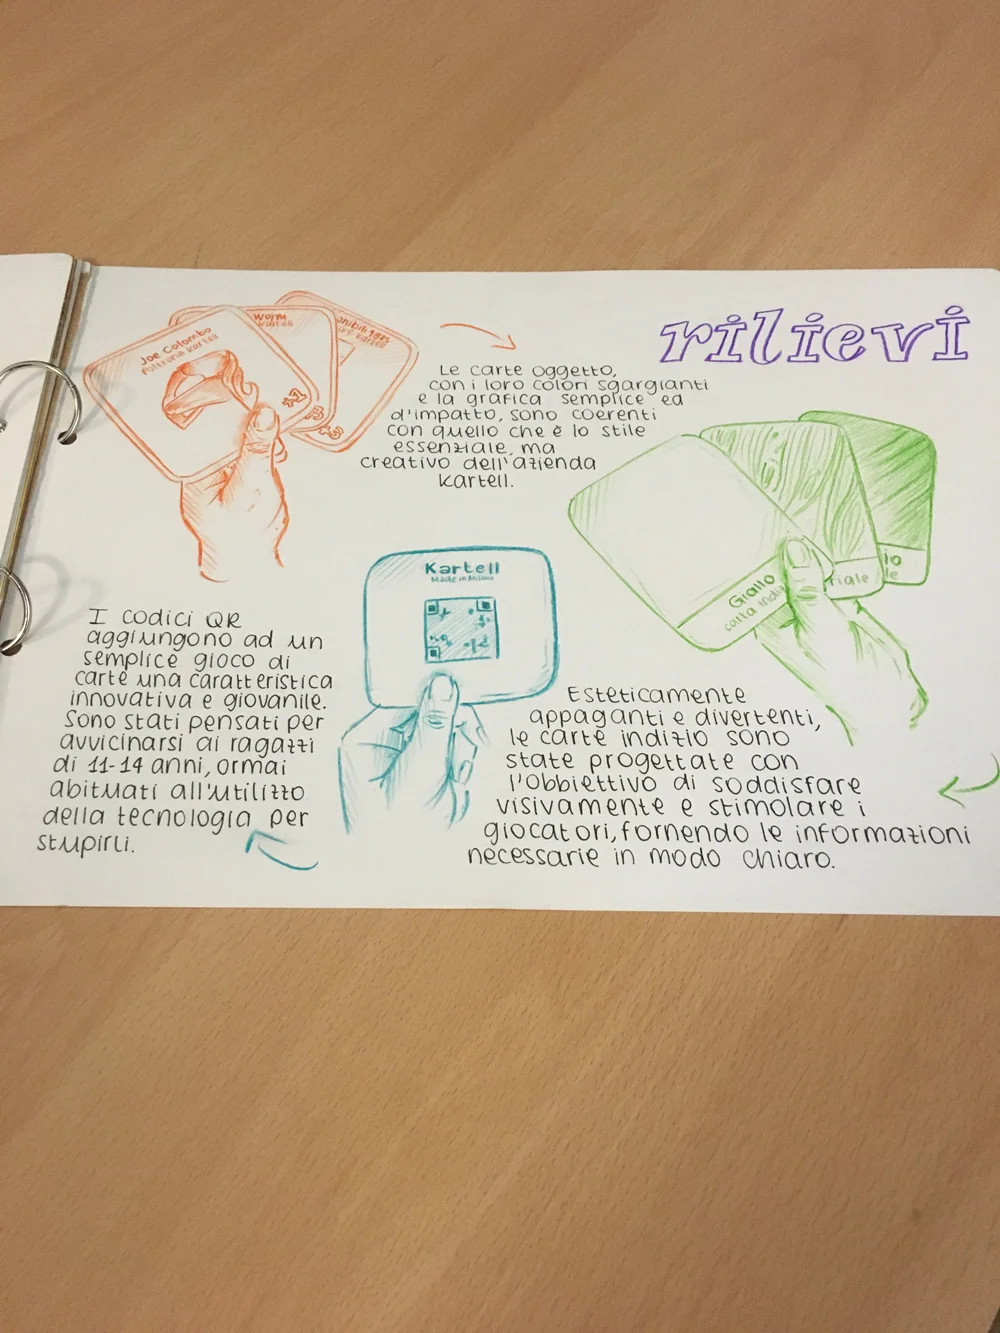 rilievi
Joe Colombo
Poltrona Kartell
+1
Worm
Kartell
+3
Kartell
+3
Le carte oggetto,
con i loro colori sgargianti
e la grafica semplice ed
d'impatto, sono coerenti
con quello che è lo stile
essenziale, ma
creativo dell'azienda
Kartell.
Giallo
carta indi
riale
io
le
Kartell
Made in Milano
I codici QR
aggiungono ad un
semplice gioco di
carte una caratteristica
innovativa e giovanile.
Sono stati pensati per
avvicinarsi ai ragazzi
di 11-14 anni, ormai
abituati all'utilizzo
della tecnologia per
stupirli.
Esteticamente
appaganti e divertenti,
le carte indizio sono
state progettate con
l'obbiettivo di soddisfare
visivamente e stimolare i
giocatori, fornendo le informazioni
necessarie in modo chiaro.